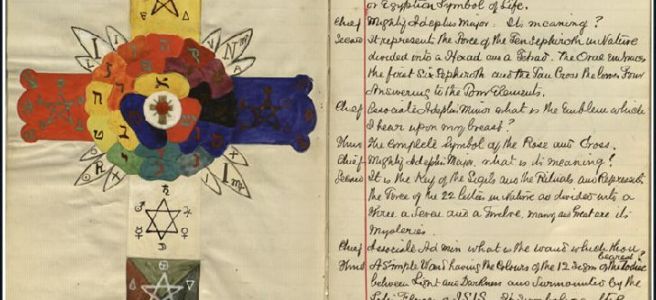 I N
R I
or Egyptian Symbol of Life.
Chief Mighty Adeptus Major. Its meaning?
Second It represents the Force of the Ten Sephiroth in Nature
divided into a Hexad and a Tetrad. The Oval embraces
the first Six Sephiroth and the Tau Cross the lower Four
Answering to the Four Elements.
Chief Associate Adeptus Minor what is the Emblem which
I bear upon my breast?
Third The Complete Symbol of the Rose and Cross.
Chief Mighty Adeptus Major. what is its meaning?
Second It is the Key of the Sigils and the Rituals and Represents
the Force of the 22 letters in Nature as divided into a
Three a Seven and a Twelve. many and Great are its
Mysteries.
Chief Associate Ad Min what is the wand which thou bearest?
Third A Simple Wand having the Colours of the 12 Signs of the Zodiac
between Light and Darkness and Surmounted by the
Lotus Flower of ISIS. It